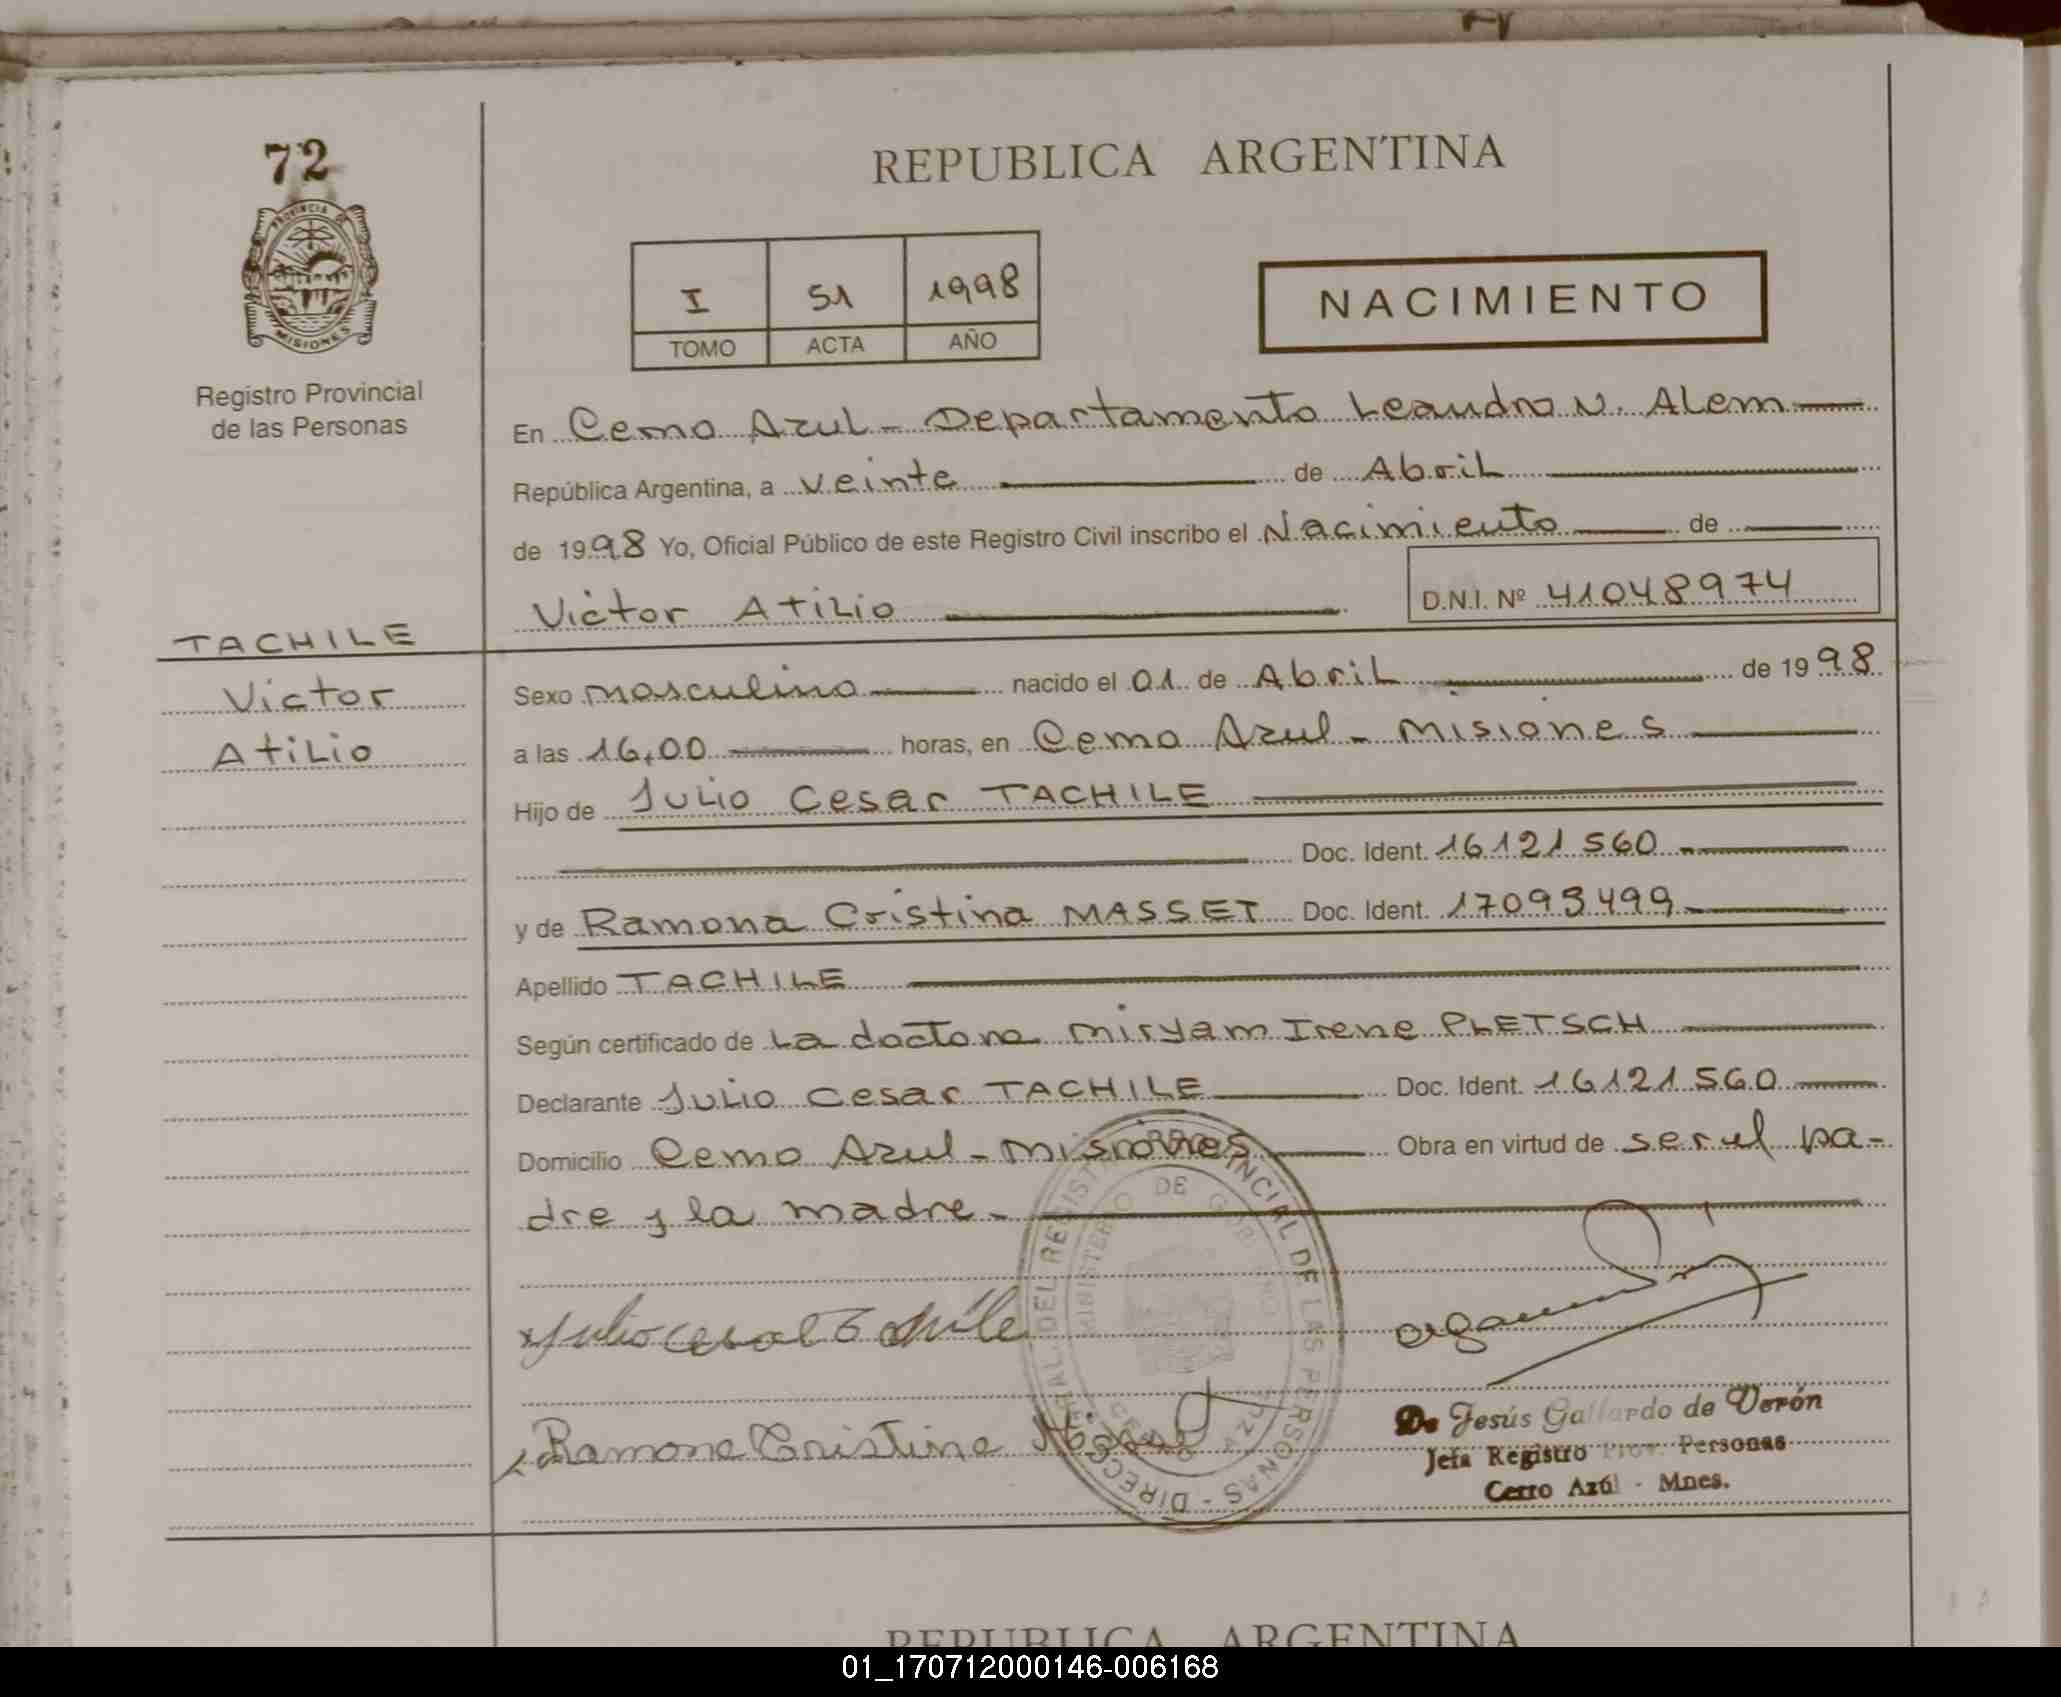 72
PROVINCIA DE
MISIONES
Registro Provincial
de las Personas
TACHILE
Victor
Atilio
REPUBLICA ARGENTINA
I 51 1998
TOMO ACTA AÑO
NACIMIENTO
En Cerro Azul - Departamento Leandro N. Alem
República Argentina, a veinte de Abril
de 1998 Yo, Oficial Público de este Registro Civil inscribo el Nacimiento de
Victor Atilio D.N.I. Nº 41048974
Sexo masculino nacido el 01 de Abril de 1998
a las 16,00 horas, en Cerro Azul - Misiones
Hijo de Julio Cesar TACHILE
Doc. Ident. 16121560
y de Ramona Cristina MASSET Doc. Ident. 17093499
Apellido TACHILE
Según certificado de La doctora Miryam Irene PLETSCH
Declarante Julio Cesar TACHILE Doc. Ident. 16121560
Domicilio Cerro Azul - Misiones Obra en virtud de ser el pa-
dre y la madre.-
Julio Cesar Tachile
Ramona Cristina
DIRECCION DEL REGISTRO PROVINCIAL DE LAS PERSONAS
MINISTERIO DE GOBIERNO
CERRO AZUL
De Jesús Gallardo de Verón
Jefa Registro Prov. Personas
Cerro Azúl - Mnes.
REPUBLICA ARGENTINA
01_170712000146-006168